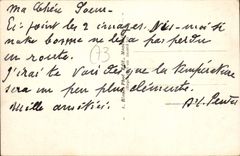 ma chère Soeur
Ci-joint les 2 images. Dis-moi si
notre bonne ne les a pas perdu
en route.
J'irai te voir dès que la température
sera un peu plus clémente.
Mille amitiés
13